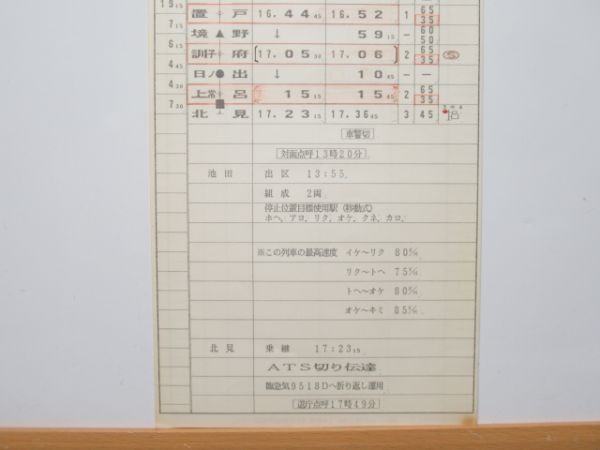 19 15
置戸 16.44 45 16.52 1 65 35
7 15
境野 ↓ 59 15 - 60 50
6 15
訓子府 17.05 30 17.06 2 65 35 ⑤
4 45
日ノ出 ↓ 10 45 - -
4 30
上常呂 15 15 15 45 2 65 35
7 30
北見 17.23 15 17.36 45 3 45
車警切
対面点呼13時20分
池田 出区 13:55
組成 2両
停止位置目標使用駅(移動式)
ホヘ, アロ, リク, オケ, クネ, カロ,
※この列車の最高速度 イケ~リク 80㎞
リク~トヘ 75㎞
トヘ~オケ 80㎞
オケ~キミ 85㎞
北見 乗継 17:23 15
ATS切り伝達
臨急気9518Dへ折り返し運用
退庁点呼17時49分